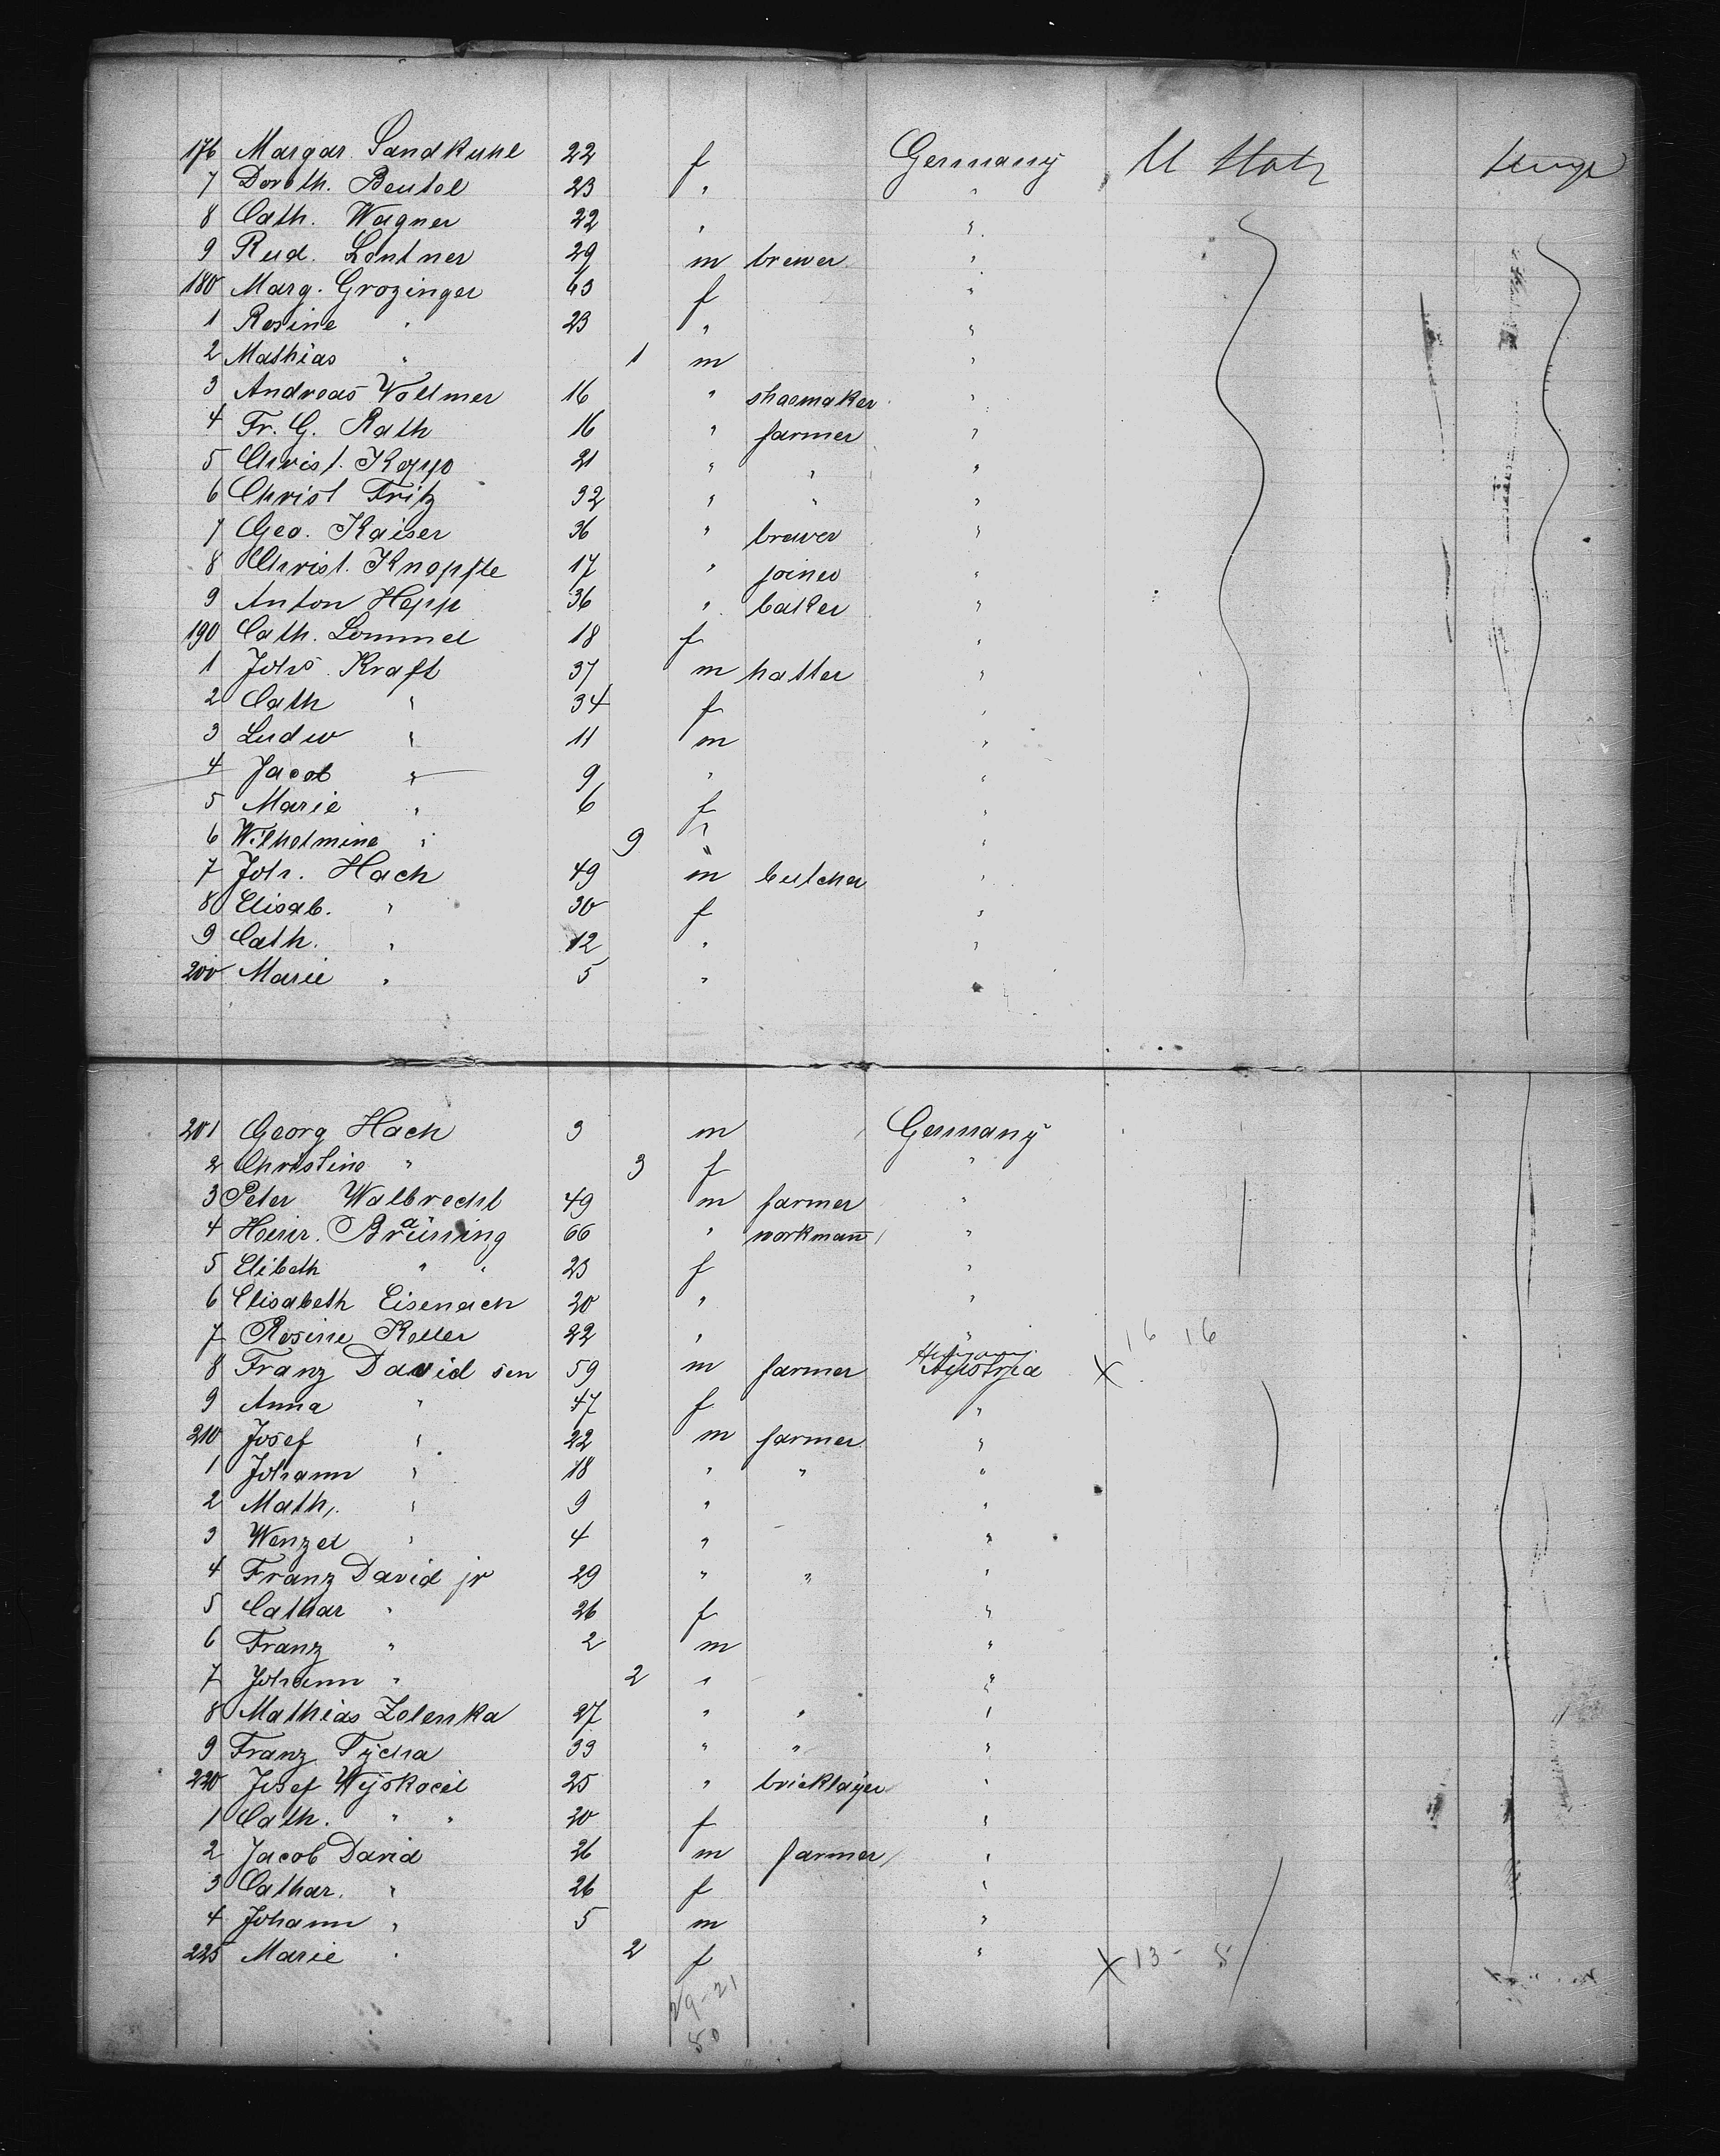 176 Margar. Sandkuhl 22 f Germany U Stats
7 Doroth. Beutel 23 " "
8 Cath. Wagner 22 " "
9 Rud. Lontner 29 m brewer "
180 Marg. Grozinger 63 f "
1 Rosine " 23 " "
2 Mathias " 1 m "
3 Andreas Vollmer 16 " shoemaker "
4 Fr. G. Rath 16 " farmer "
5 Christ. Kopp 21 " " "
6 Christ Fritz 32 " " "
7 Geo. Kaiser 36 " brewer "
8 Christ. Knopfle 17 " joiner "
9 Anton Hepp 36 " baker "
190 Cath. Lommel 18 f "
1 Johs. Kraft 37 m hatter "
2 Cath " 34 f "
3 Ludw " 11 m "
4 Jacob " 9 " "
5 Marie " 6 f "
6 Wilhelmine " 9 " "
7 Joh. Hach 49 m butcher "
8 Elisab. " 30 f "
9 Cath. " 12 " "
200 Marie " 5 " "
201 Georg Hach 3 m Germany
2 Christine " 3 f "
3 Peter Walbrecht 49 m farmer "
4 Heinr. Bräuning 66 " workman "
5 Elibeth " " 23 f "
6 Elisabeth Eisenach 20 " "
7 Rosine Keller 22 " " 16 16
8 Franz David sen 59 m farmer Austria X
9 Anna " 47 f "
210 Josef " 22 m farmer "
1 Johann " 18 " " "
2 Math. " 9 " "
3 Wenzel " 4 " "
4 Franz David jr 29 " " "
5 Cathar " 26 f "
6 Franz " 2 m "
7 Johann " 2 " "
8 Mathias Zelenka 27 " " "
9 Franz Tycha 33 " " "
220 Josef Wyskocil 25 " bricklayer "
1 Cath. " " 20 f "
2 Jacob David 26 m farmer "
3 Cathar. " 26 f "
4 Johann " 5 m "
225 Marie " 2 f " X 13 - 8
29-21
50